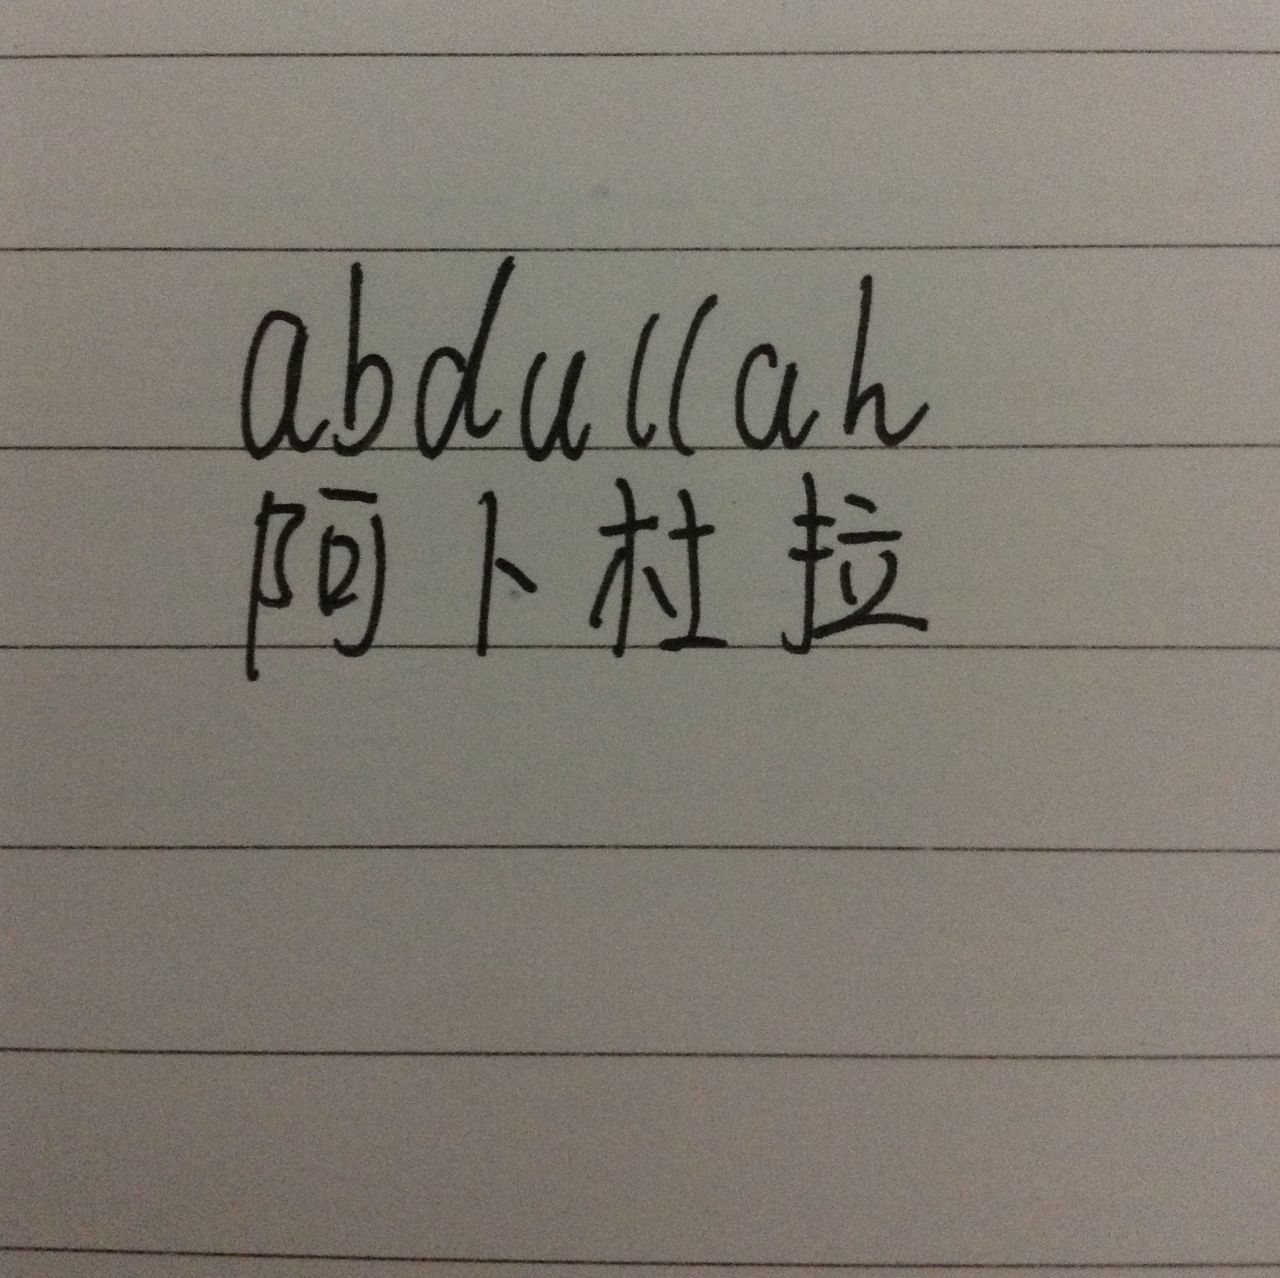 abdullah
阿卜杜拉